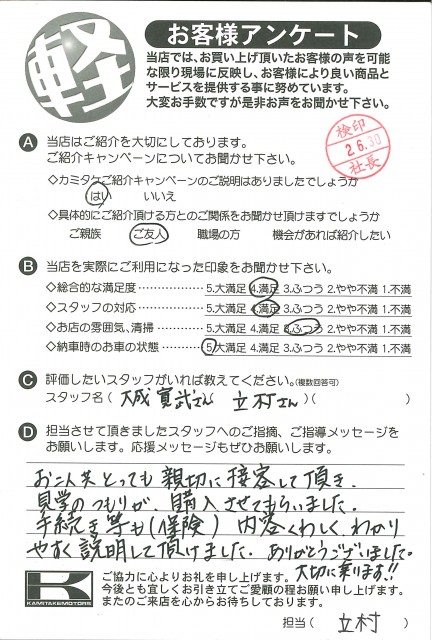 軽
お客様アンケート
当店では、お買い上げ頂いたお客様の声を可能
な限り現場に反映し、お客様により良い商品と
サービスを提供する事に努めています。
大変お手数ですが是非お声をお聞かせ下さい。
検印
2.6.30
社長
A 当店はご紹介を大切にしております。
ご紹介キャンペーンについてお聞かせ下さい。
◇カミタケご紹介キャンペーンのご説明はありましたでしょうか
はい いいえ
◇具体的にご紹介頂ける方とのご関係をお聞かせ頂けますでしょうか
ご親族 ご友人 職場の方 機会があれば紹介したい
B 当店を実際にご利用になった印象をお聞かせ下さい。
◇総合的な満足度 …………… 5.大満足 4.満足 3.ふつう 2.やや不満 1.不満
◇スタッフの対応 …………… 5.大満足 4.満足 3.ふつう 2.やや不満 1.不満
◇お店の雰囲気、清掃 ……… 5.大満足 4.満足 3.ふつう 2.やや不満 1.不満
◇納車時のお車の状態 ……… 5.大満足 4.満足 3.ふつう 2.やや不満 1.不満
C 評価したいスタッフがいれば教えてください。(複数回答可)
スタッフ名( 大成寛武さん 立村さん )( )
D 担当させて頂きましたスタッフへのご指摘、ご指導メッセージを
お願いします。応援メッセージもぜひお願いします。
お二人共とっても親切に接客して頂き、
見学のつもりが、購入させてもらいました。
手続き等も(保険) 内容くわしく、わかり
やすく説明して頂けました。ありがとうございました。
大切に乗ります!!
K
KAMITAKEMOTORS
ご協力に心よりお礼を申し上げます。
今後とも宜しくお引き立てご愛顧の程お願い申し上げます。
またのご来店を心からお待ちしております。
担当( 立村 )